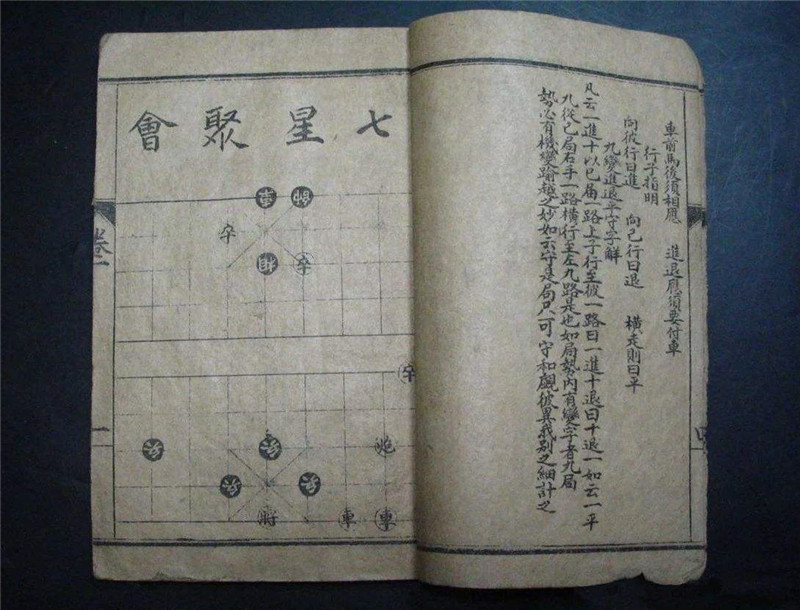 車前馬後須相應　進退應須要付車
行子指明
向彼行曰進　向己行曰退　橫走則曰平
九變進退平守字解
凡云一進十以己局一路上子行至彼一路曰一進十退曰十退一如云一平
九從己局右手一路橫行至左九路是也如局勢內有變字者九局
勢必有機變踰越之妙如云守是局只可守和觀彼異我別之細計之
七星聚會
卒
卒
卒
兵 兵 炮
兵 兵
將 車 車
卷一
一